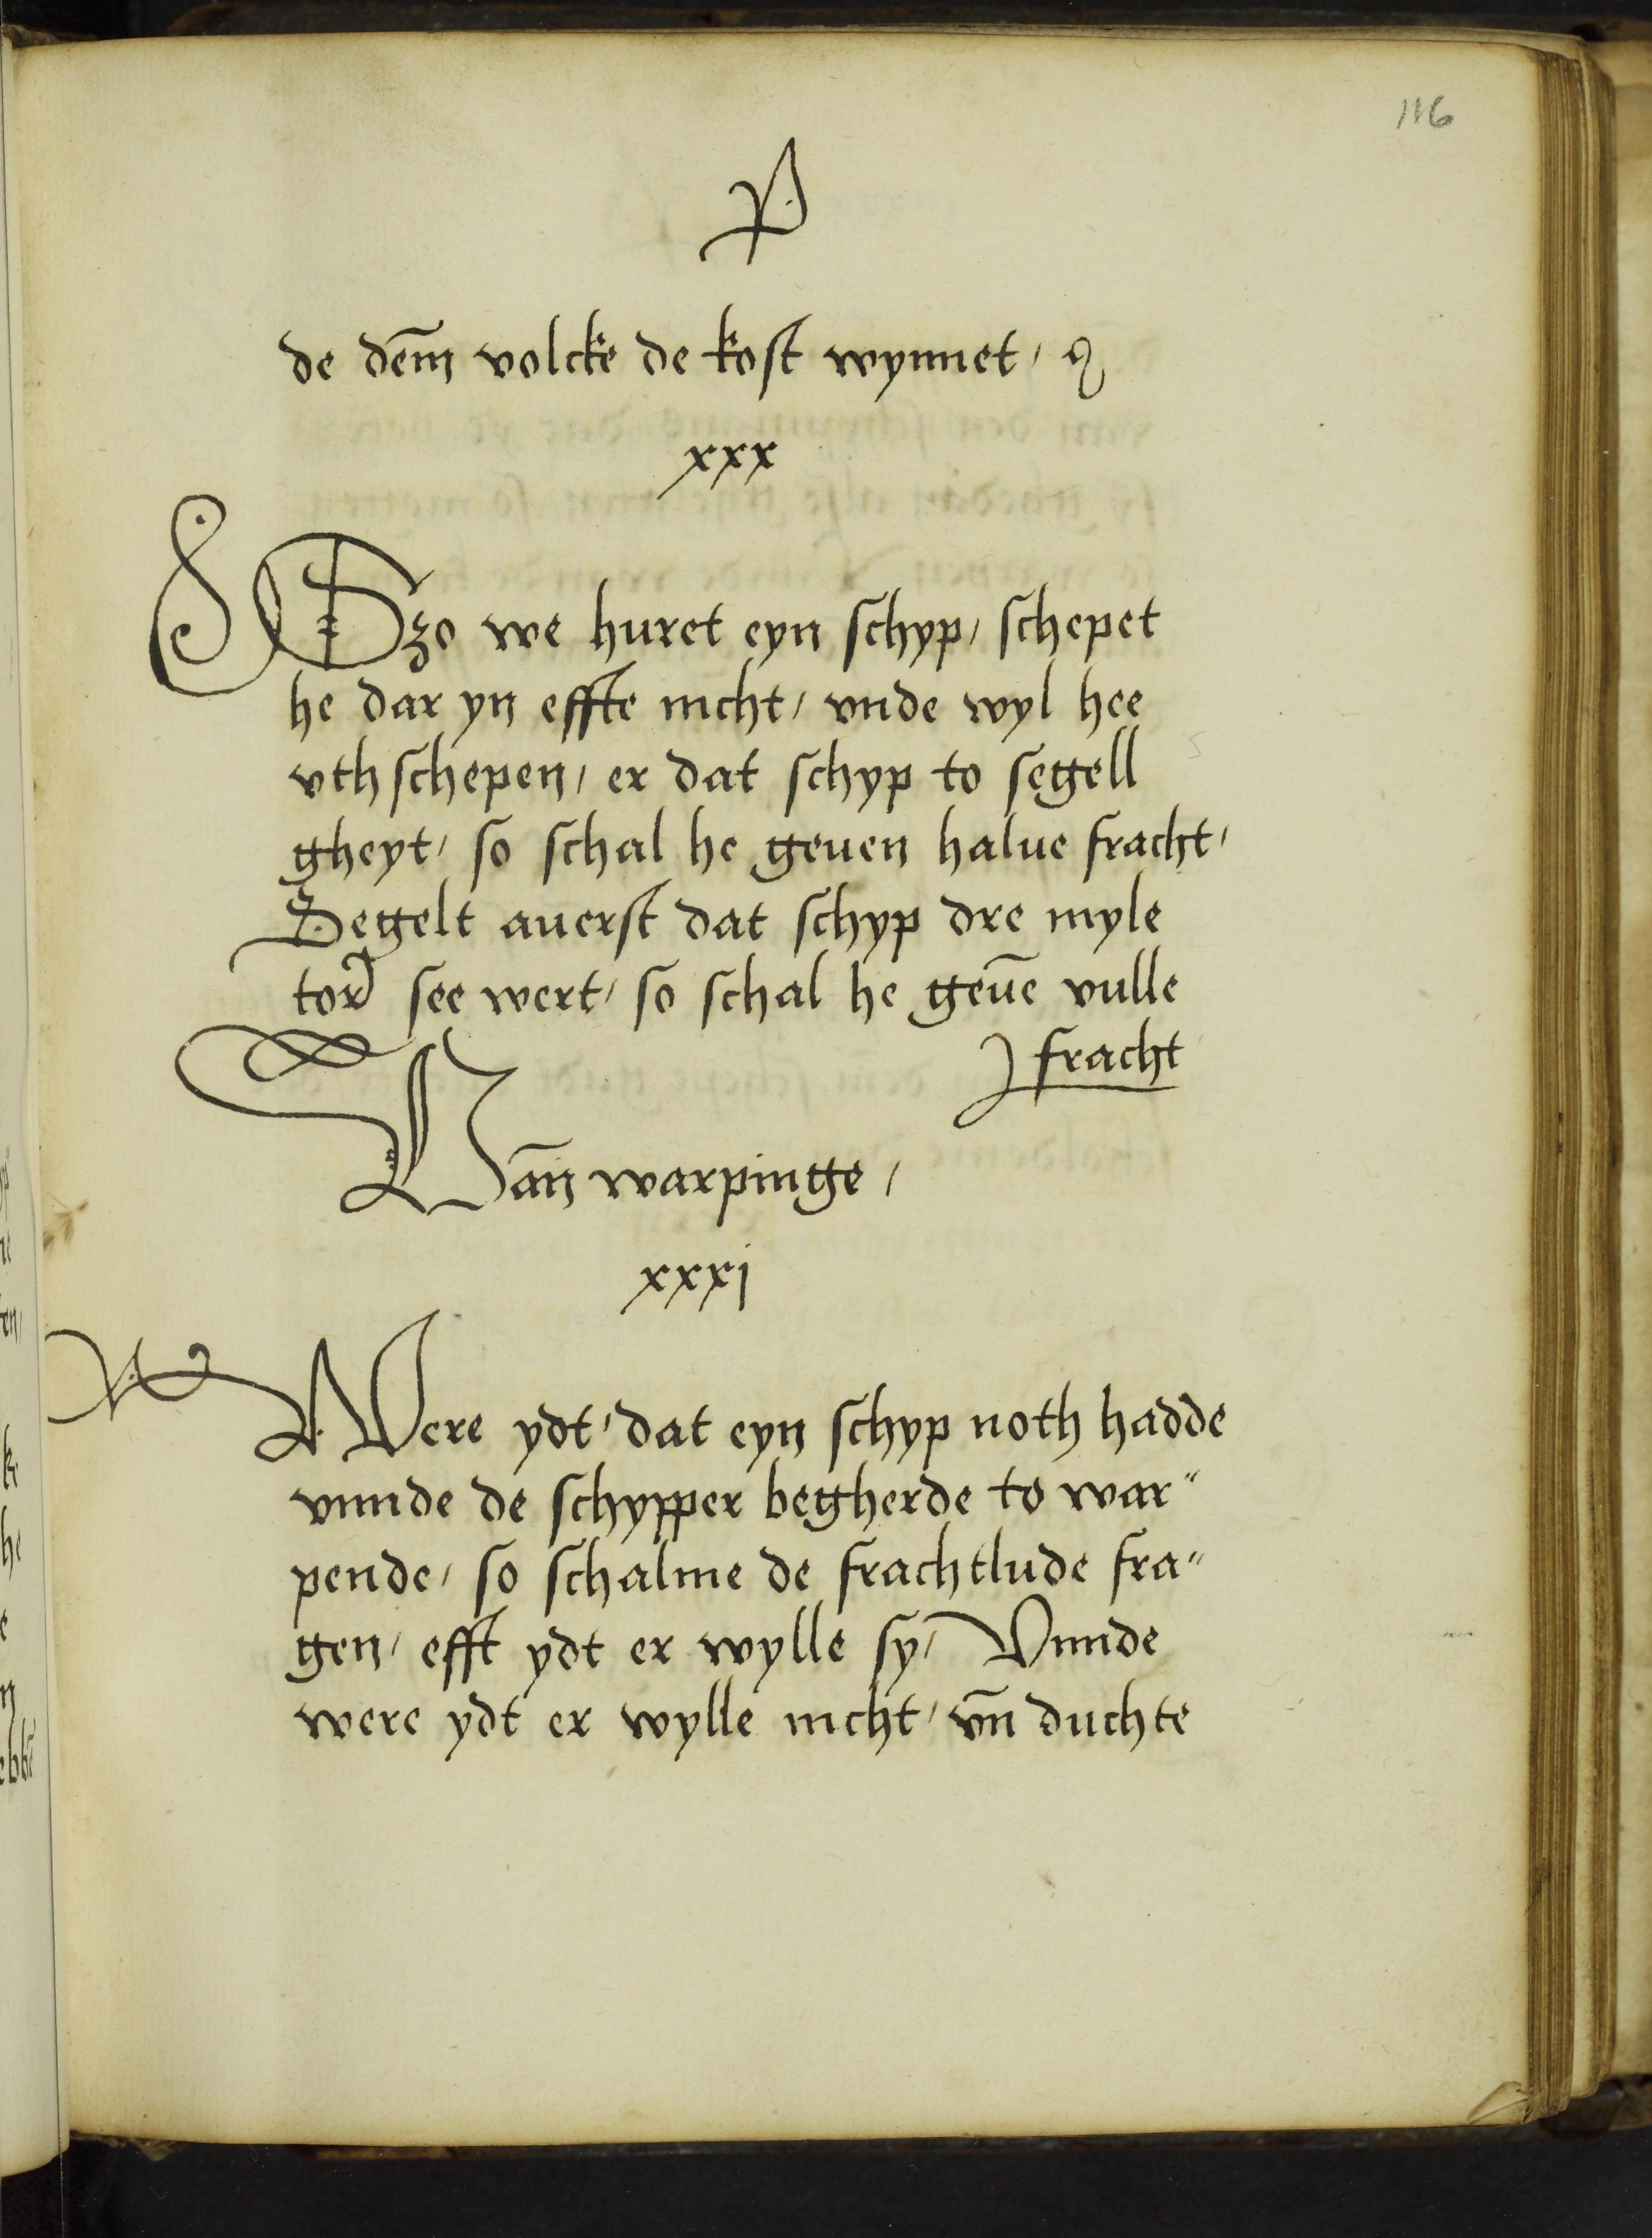 116
P
de dem̄ volcke de kost wynnet /
xxx
Szo we huret eyn schyp / schepet
he dar yn effte nicht / vnde wyl hee
vth schepen / er dat schyp to segell
gheyt / so schal he geuen halue fracht /
Segelt auerst dat schyp dre myle
tor see wert / so schal he geuē vulle
fracht
Van̄ warpinge /
xxxi
Were ydt / dat eyn schyp noth hadde
vnnde de schypper begherde to war"
pende / so schalme de frachtlude fra"
gen / efft ydt er wylle sy / Vnnde
were ydt er wylle nicht / vn̄ duchte